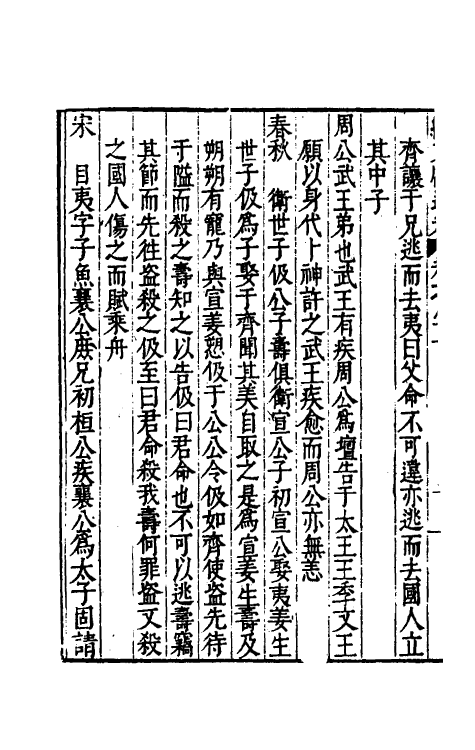 齊讓于兄逃而去夷曰父命不可違亦逃而去國人立
其中子
周公武王弟也武王有疾周公爲壇告于太王王季文王
願以身代卜神許之武王疾愈而周公亦無恙
春秋　衛世子伋公子壽俱衛宣公子初宣公娶夷姜生
世子伋爲子娶于齊聞其美自取之是爲宣姜生壽及
朔朔有寵乃與宣姜愬伋于公公令伋如齊使盜先待
于隘而殺之壽知之以告伋曰君命也不可以逃壽竊
其節而先徃盜殺之伋至曰君命殺我壽何罪盜又殺
之國人傷之而賦乘舟
宋　目夷字子魚襄公庶兄初桓公疾襄公爲太子固請